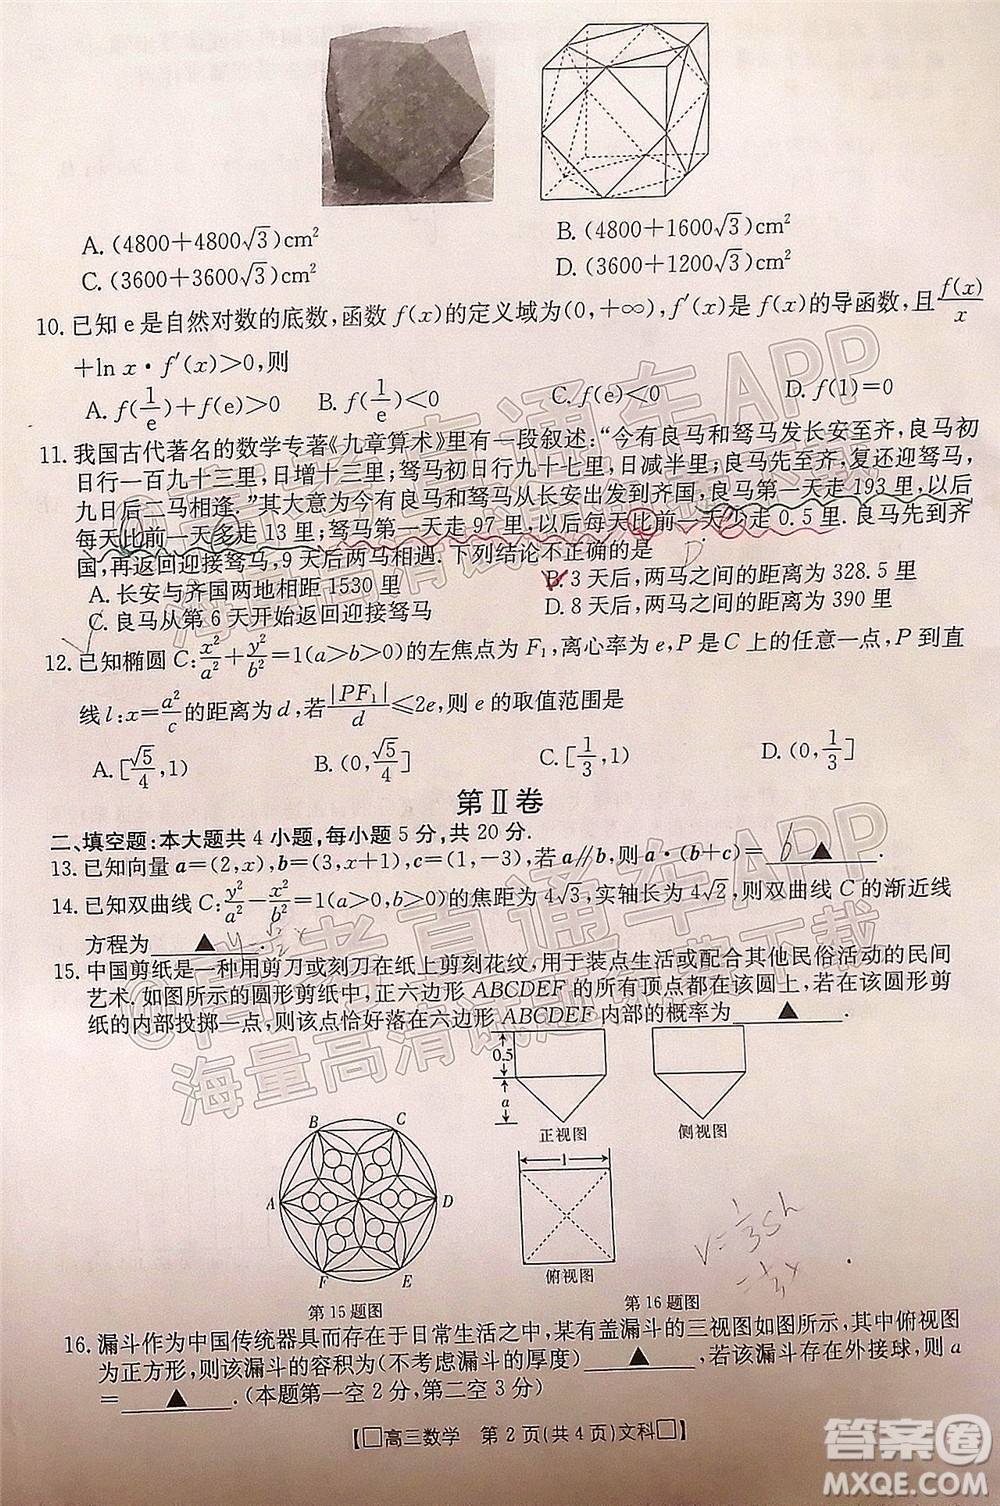 A. (4800+4800√3)cm²
B. (4800+1600√3)cm²
C. (3600+3600√3)cm²
D. (3600+1200√3)cm²
10. 已知 e 是自然对数的底数,函数 f(x)的定义域为(0,+∞),f′(x)是 f(x)的导函数,且f(x)/x
+ln x·f′(x)>0,则
A. f(1/e)+f(e)>0
B. f(1/e)<0
C. f(e)<0
D. f(1)=0
11. 我国古代著名的数学专著《九章算术》里有一段叙述:“今有良马和驽马发长安至齐,良马初
日行一百九十三里,日增十三里;驽马初日行九十七里,日减半里;良马先至齐,复还迎驽马,
九日后二马相逢.”其大意为今有良马和驽马从长安出发到齐国,良马第一天走 193 里,以后
每天比前一天多走 13 里;驽马第一天走 97 里,以后每天比前一天少走 0.5 里. 良马先到齐
国,再返回迎接驽马,9 天后两马相遇. 下列结论不正确的是
D
A. 长安与齐国两地相距 1530 里
B. 3 天后,两马之间的距离为 328.5 里
C. 良马从第 6 天开始返回迎接驽马
D. 8 天后,两马之间的距离为 390 里
12. 已知椭圆 C:x²/a²+y²/b²=1(a>b>0)的左焦点为 F₁,离心率为 e,P 是 C 上的任意一点,P 到直
线 l:x=a²/c的距离为 d,若|PF₁|/d≤2e,则 e 的取值范围是
A. [√5/4,1)
B. (0,√5/4]
C. [1/3,1)
D. (0,1/3]
第Ⅱ卷
二、填空题:本大题共 4 小题,每小题 5 分,共 20 分.
13. 已知向量 a=(2,x),b=(3,x+1),c=(1,-3),若 a∥b,则 a·(b+c)= 6 ▲ .
14. 已知双曲线 C:y²/a²-x²/b²=1(a>0,b>0)的焦距为 4√3,实轴长为 4√2,则双曲线 C 的渐近线
方程为 ▲ .
15. 中国剪纸是一种用剪刀或刻刀在纸上剪刻花纹,用于装点生活或配合其他民俗活动的民间
艺术. 如图所示的圆形剪纸中,正六边形 ABCDEF 的所有顶点都在该圆上,若在该圆形剪
纸的内部投掷一点,则该点恰好落在六边形 ABCDEF 内部的概率为 ▲ .
0.5
a
正视图
侧视图
B
C
A
D
F
E
第 15 题图
1
俯视图
第 16 题图
V=1/3Sh
16. 漏斗作为中国传统器具而存在于日常生活之中,某有盖漏斗的三视图如图所示,其中俯视图
为正方形,则该漏斗的容积为(不考虑漏斗的厚度) ▲ ,若该漏斗存在外接球,则 a
= ▲ .(本题第一空 2 分,第二空 3 分)
【□高三数学 第 2 页(共 4 页)文科□】
@高考直通车APP
海量高清试题免费下载
@高考直通车APP
海量高清试题免费下载
答案圈
MXQE.COM